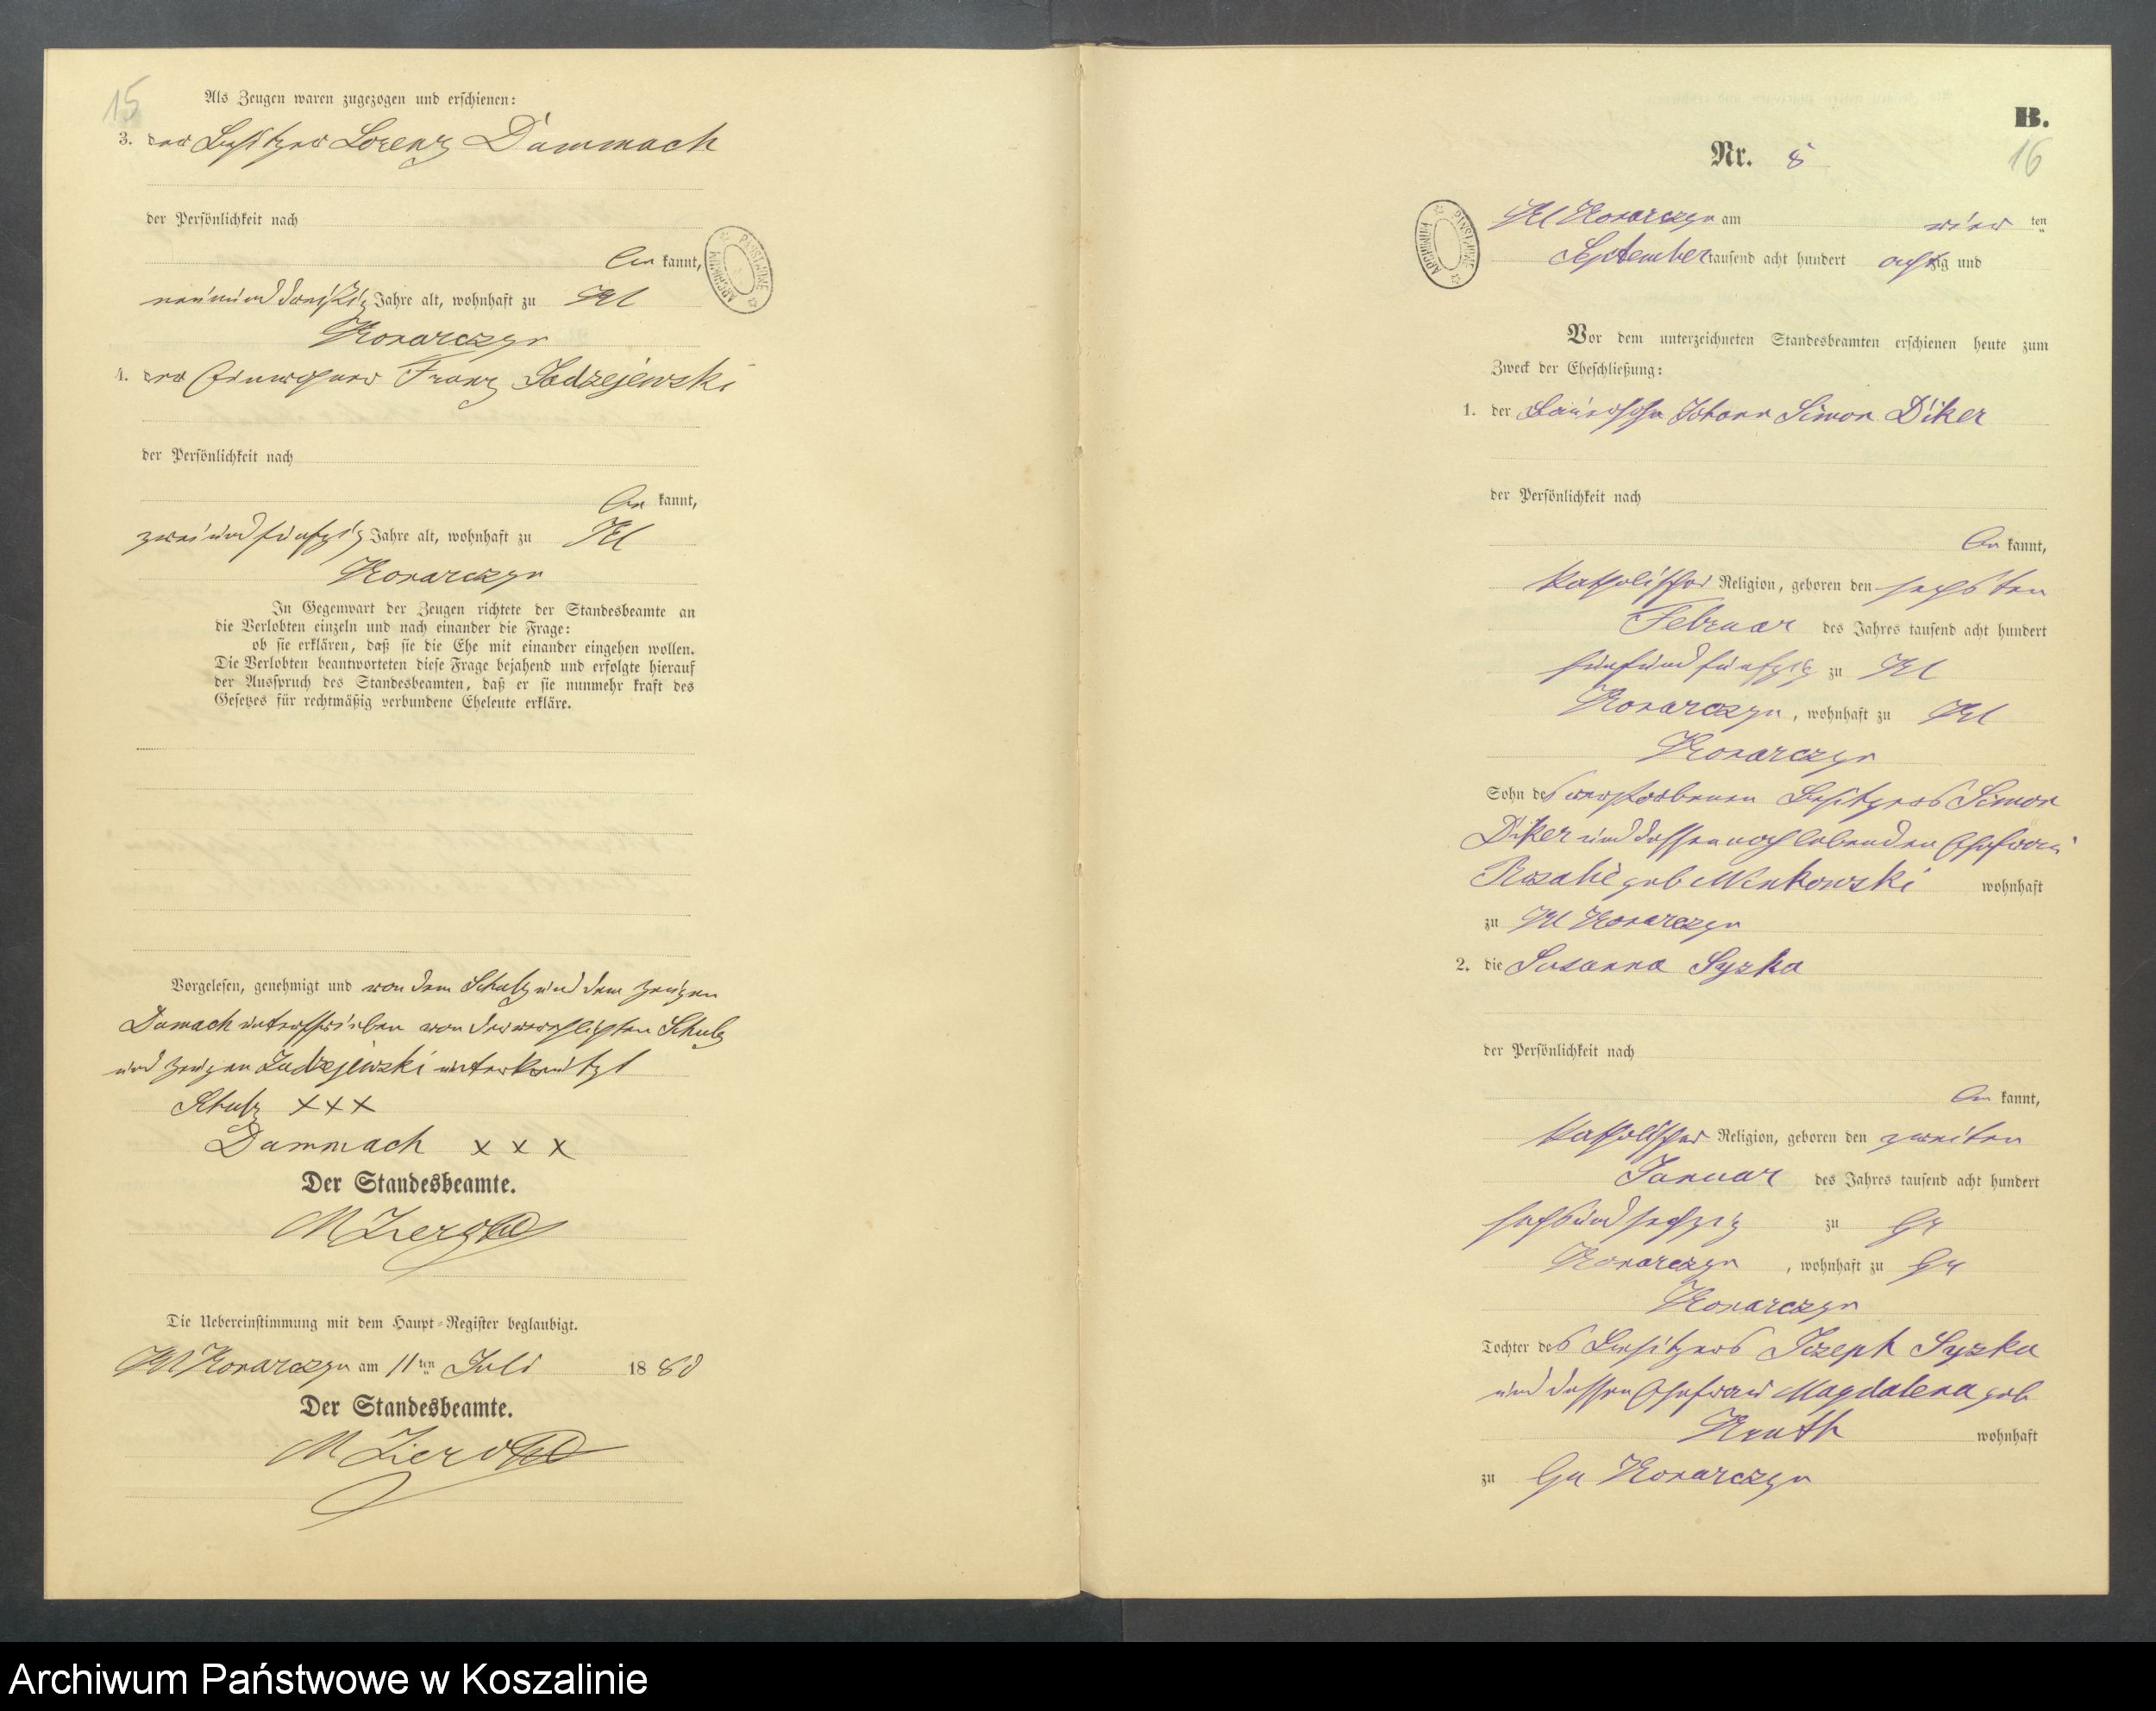 15
Als Zeugen waren zugezogen und erschienen:
3. der Besitzer Lorenz Dammach
der Persönlichkeit nach
be kannt,
neununddreißig Jahre alt, wohnhaft zu Kl
Konarczyn
4. der Einwohner Franz Jadzejewski
der Persönlichkeit nach
be kannt,
zweiundfünfzig Jahre alt, wohnhaft zu Kl
Konarczyn
In Gegenwart der Zeugen richtete der Standesbeamte an
die Verlobten einzeln und nach einander die Frage:
ob sie erklären, daß sie die Ehe mit einander eingehen wollen.
Die Verlobten beantworteten diese Frage bejahend und erfolgte hierauf
der Ausspruch des Standesbeamten, daß er sie nunmehr kraft des
Gesetzes für rechtmäßig verbundene Eheleute erkläre.
Vorgelesen, genehmigt und von dem Schulz und dem Zeugen
Damach unterschrieben von der verehlichten Schulz
und Zeugen Jadzejewski unterkreuzt
Schulz xxx
Dammach x x x
Der Standesbeamte.
Die Uebereinstimmung mit dem Haupt-Register beglaubigt.
Kl Konarczyn am 11ten Juli 1880
Der Standesbeamte.
B.
16
Nr. 8
Kl Konarczyn am vier ten
September tausend acht hundert achtzig und
Vor dem unterzeichneten Standesbeamten erschienen heute zum
Zweck der Eheschließung:
1. der Bauersohn Johann Simon Diker
der Persönlichkeit nach
be kannt,
katholischer Religion, geboren den sechsten
Februar des Jahres tausend acht hundert
fünfundfünfzig zu Kl
Konarczyn, wohnhaft zu Kl
Konarczyn
Sohn des verstorbenen Besitzers Simon
Diker und dessen noch lebenden Ehefrau
Rosalie geb Minkowski wohnhaft
zu Kl Konarczyn
2. die Susanna Syzka
der Persönlichkeit nach
be kannt,
katholischer Religion, geboren den zweiten
Januar des Jahres tausend acht hundert
sechsundsechzig zu Gr
Konarczyn, wohnhaft zu Gr
Konarczyn
Tochter des Besitzers Jozeph Syzka
und dessen Ehefrau Magdalena geb
Knuth wohnhaft
zu Gr Konarczyn
Archiwum Państwowe w Koszalinie